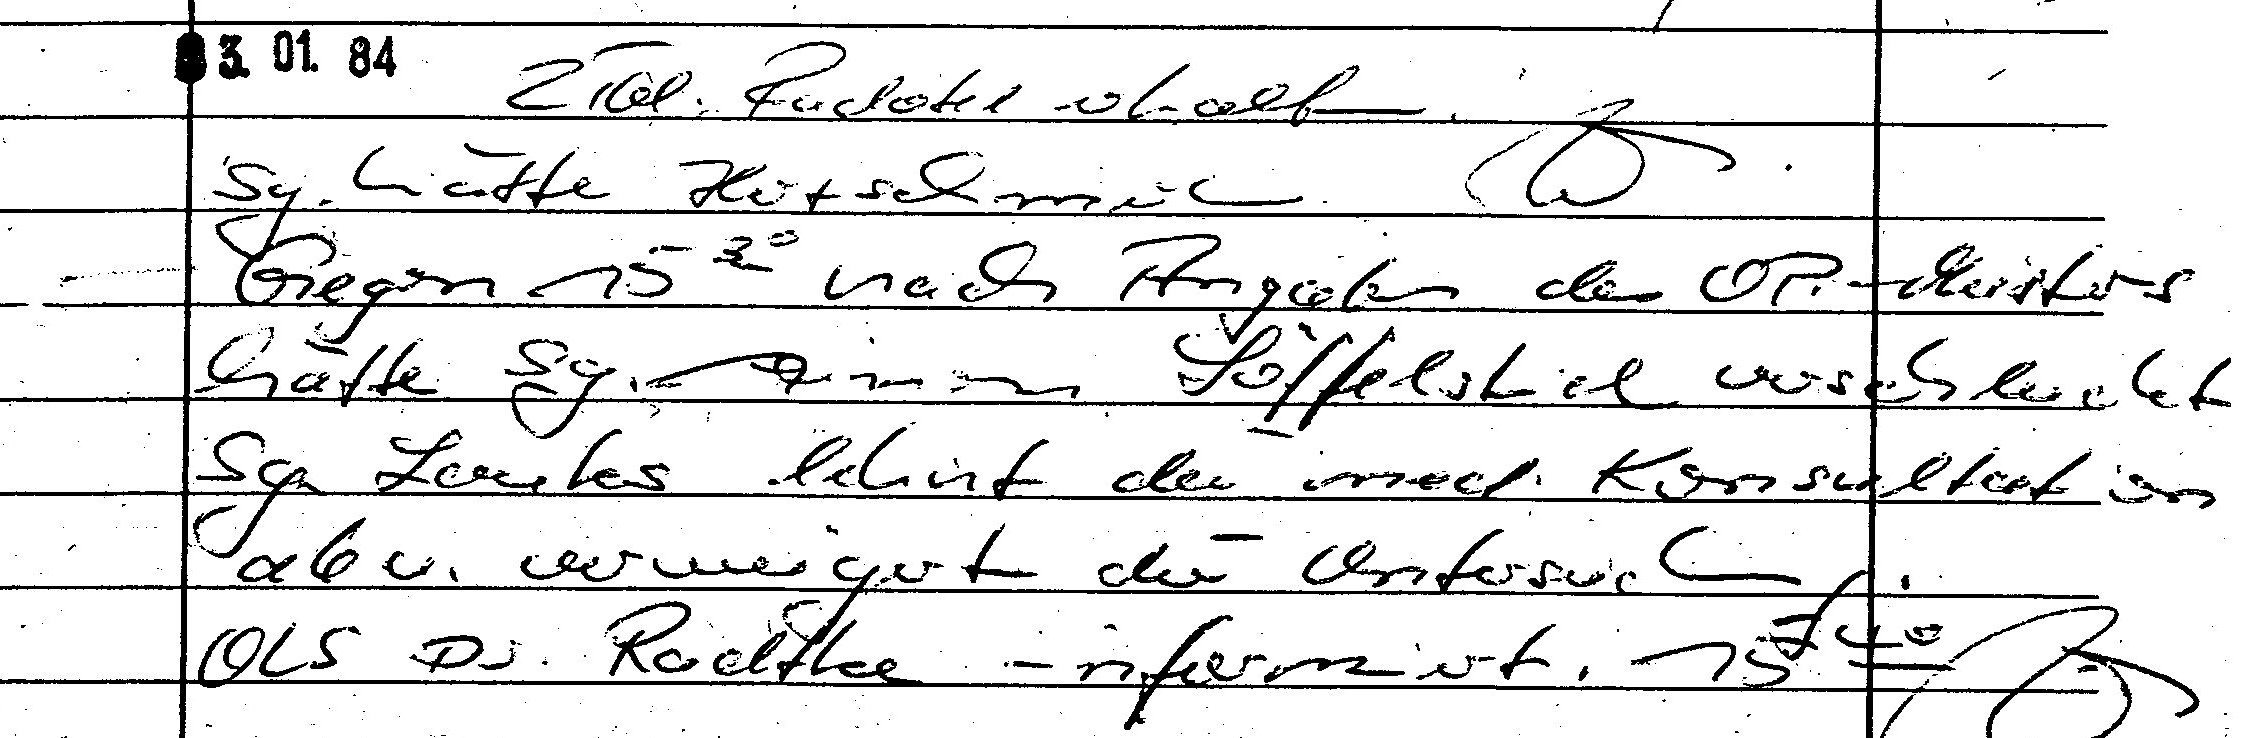 3. 01. 84
2 Tbl. Rudotel erhalten.
Sg. hätte Herzschmerzen.
Gegen 15 30 nach Angaben des OP.-Meisters
hätte Sg. einen Löffelstiel verschluckt
Sg. lehnt den med. Konsultation
ab u. verweigert die Untersuch.
OLS Dr. Radtke informiert. 15 40